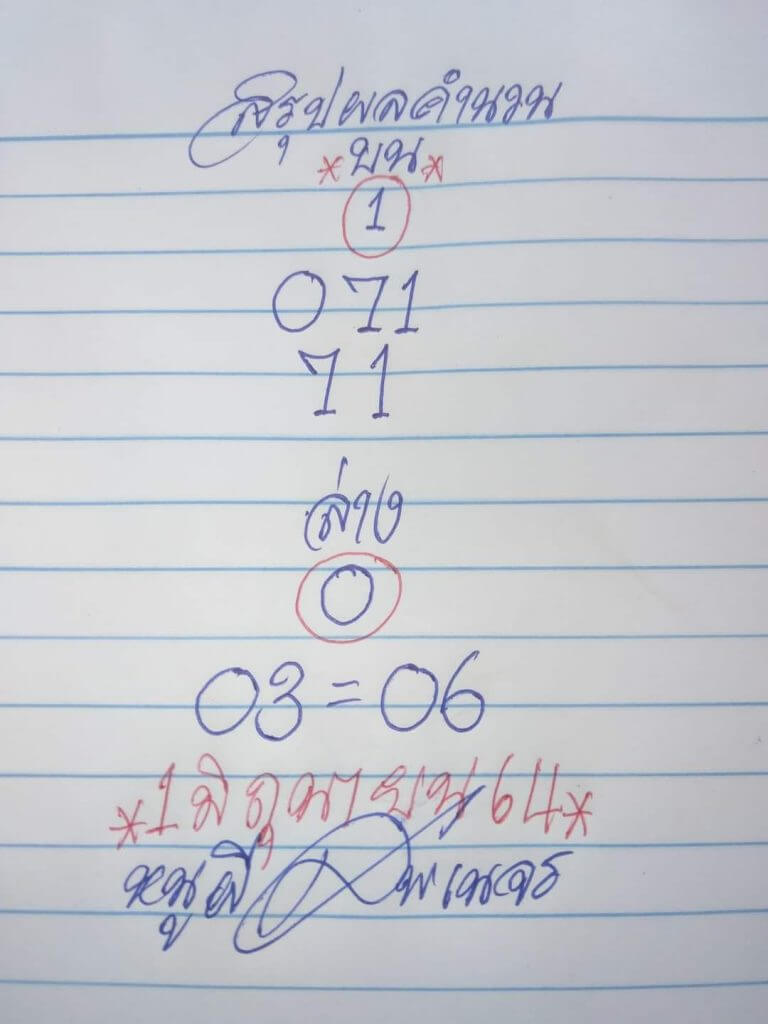 สรุปผลคำนวน
*บน*
1
071
71
ล่าง
0
03=06
*1มิถุนายน64*
หนูผี พเนจร